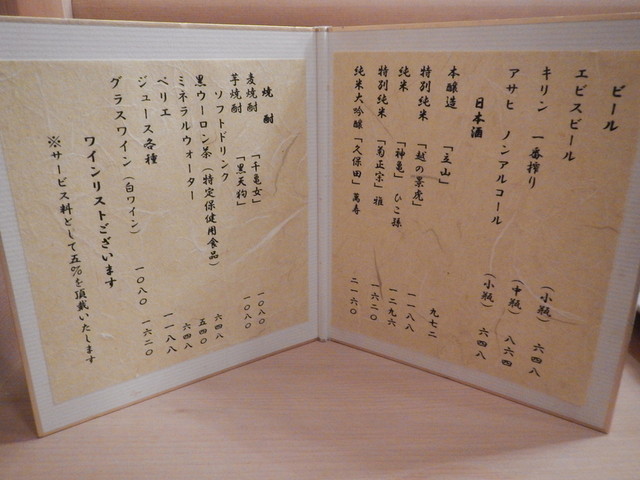 ビール
エビスビール （小瓶） 六四八
キリン 一番搾り （中瓶） 八六四
アサヒ ノンアルコール （小瓶） 六四八
日本酒
本醸造 「立山」 九七二
特別純米 「越の景虎」 一一八八
純米 「神亀」 ひこ孫 一二九六
特別純米 「菊正宗」雅 一六二〇
純米大吟醸「久保田」萬寿 二一六〇
焼酎
麦焼酎 「千亀女」 一〇八〇
芋焼酎 「黒天狗」 一〇八〇
ソフトドリンク
黒ウーロン茶（特定保健用食品） 六四八
ミネラルウォーター 五四〇
ペリエ 六四八
ジュース各種 一一八八
グラスワイン（白ワイン） 一〇八〇 一六二〇
ワインリストございます
※サービス料として五％を頂戴いたします